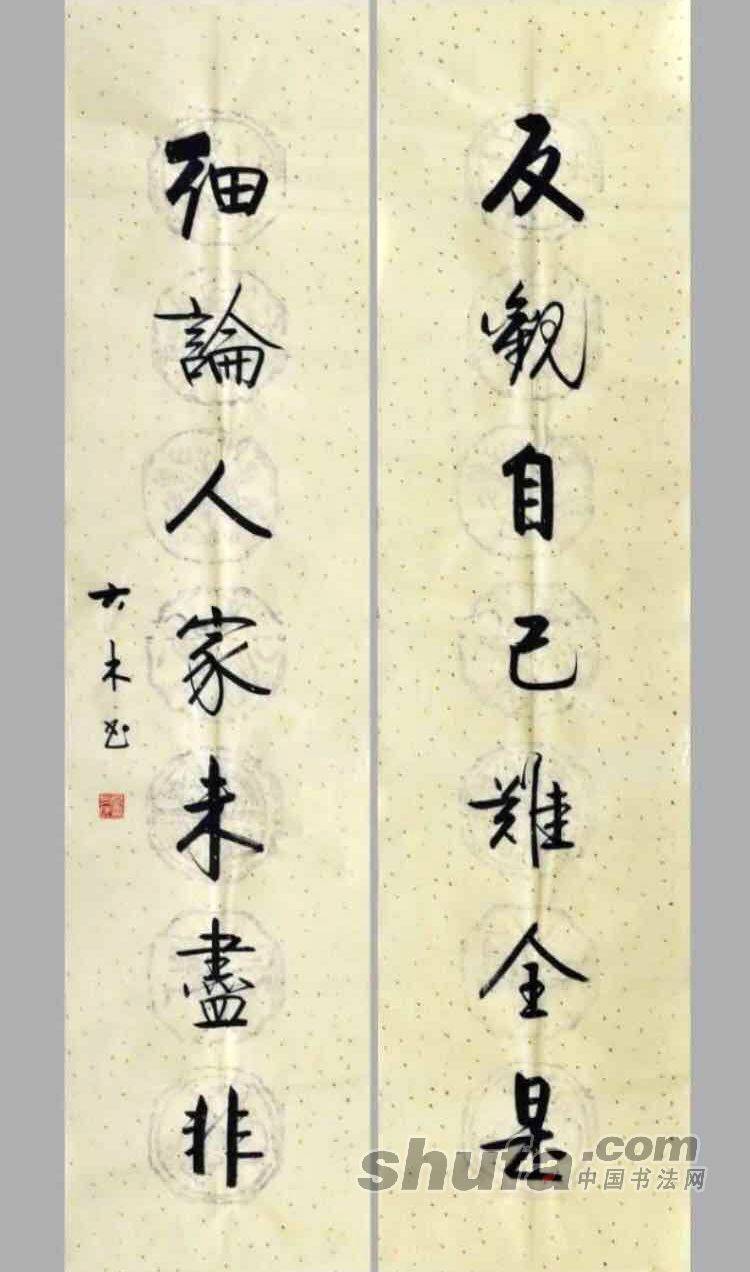 反觀自己難全是
細論人家未盡非
大木书
shufa.com
中国书法网